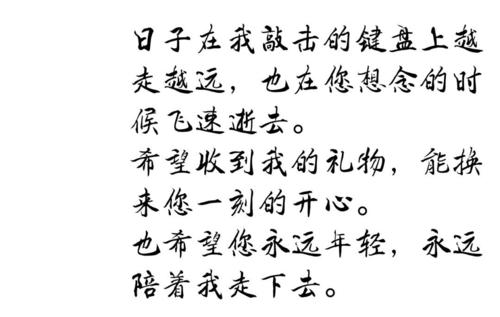 日子在我敲击的键盘上越
走越远，也在您想念的时
候飞速逝去。
希望收到我的礼物，能换
来您一刻的开心。
也希望您永远年轻，永远
陪着我走下去。